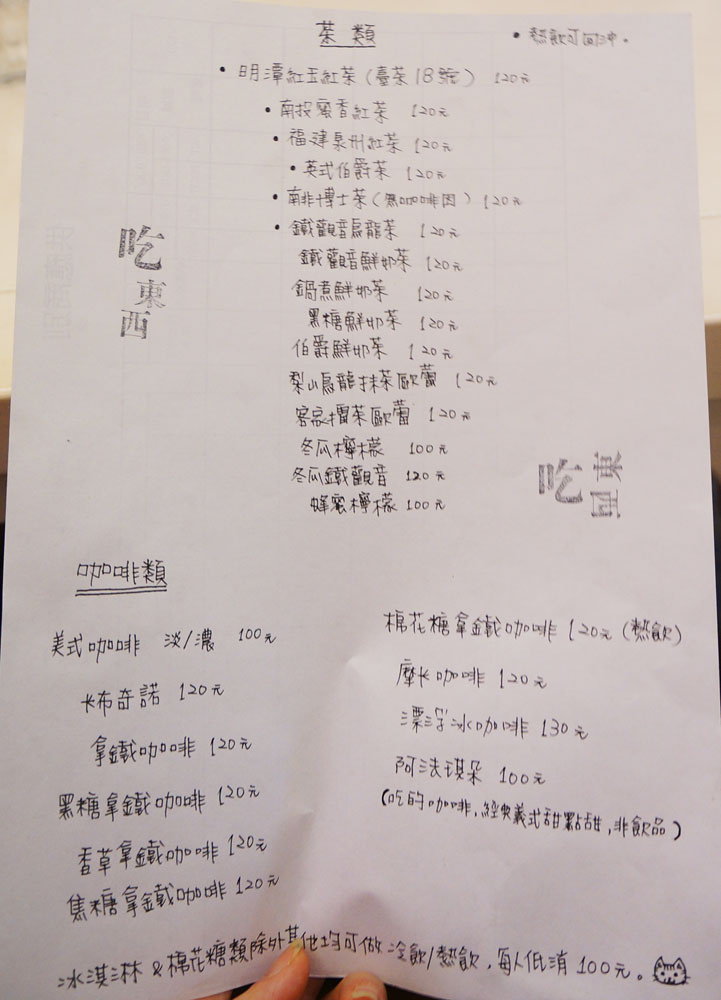 茶類
• 熱飲可回沖。
• 明潭紅玉紅茶（臺茶18號） 120元
• 南投蜜香紅茶 120元
• 福建泉州紅茶 120元
• 英式伯爵茶 120元
• 南非博士茶（無咖啡因） 120元
• 鐵觀音烏龍茶 120元
鐵觀音鮮奶茶 120元
鍋煮鮮奶茶 120元
黑糖鮮奶茶 120元
伯爵鮮奶茶 120元
梨山烏龍抹茶歐蕾 120元
客家擂茶歐蕾 120元
冬瓜檸檬 100元
冬瓜鐵觀音 120元
蜂蜜檸檬 100元
吃
東
西
吃
東
西
咖啡類
美式咖啡 淡/濃 100元
卡布奇諾 120元
拿鐵咖啡 120元
黑糖拿鐵咖啡 120元
香草拿鐵咖啡 120元
焦糖拿鐵咖啡 120元
棉花糖拿鐵咖啡 120元（熱飲）
摩卡咖啡 120元
漂浮冰咖啡 130元
阿法琪朵 100元
（吃的咖啡，經典義式甜點甜，非飲品）
冰淇淋 & 棉花糖類除外其他均可做 冷飲/熱飲，每人低消 100元。